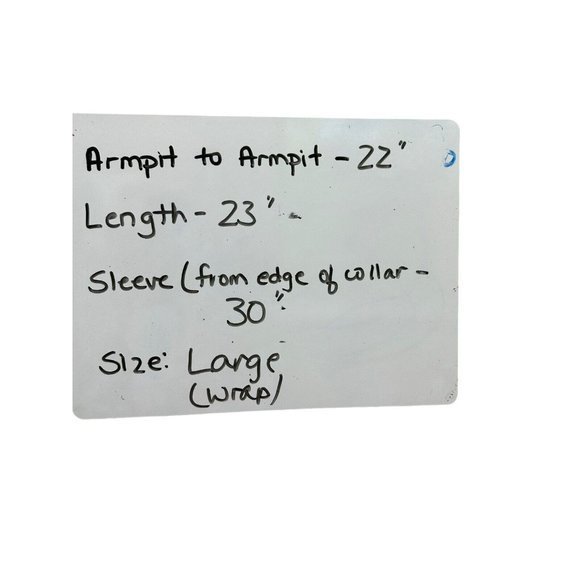 Armpit to Armpit - 22"
Length - 23"
Sleeve (from edge of collar -
30"
Size: Large
(wrap)